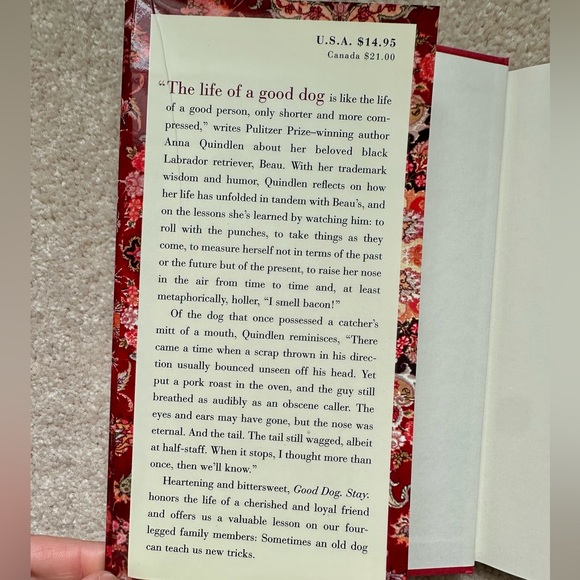 U.S.A. $14.95
Canada $21.00
“The life of a good dog is like the life
of a good person, only shorter and more com-
pressed,” writes Pulitzer Prize–winning author
Anna Quindlen about her beloved black
Labrador retriever, Beau. With her trademark
wisdom and humor, Quindlen reflects on how
her life has unfolded in tandem with Beau’s, and
on the lessons she’s learned by watching him: to
roll with the punches, to take things as they
come, to measure herself not in terms of the past
or the future but of the present, to raise her nose
in the air from time to time and, at least
metaphorically, holler, “I smell bacon!”
Of the dog that once possessed a catcher’s
mitt of a mouth, Quindlen reminisces, “There
came a time when a scrap thrown in his direc-
tion usually bounced unseen off his head. Yet
put a pork roast in the oven, and the guy still
breathed as audibly as an obscene caller. The
eyes and ears may have gone, but the nose was
eternal. And the tail. The tail still wagged, albeit
at half-staff. When it stops, I thought more than
once, then we’ll know.”
Heartening and bittersweet, Good Dog. Stay.
honors the life of a cherished and loyal friend
and offers us a valuable lesson on our four-
legged family members: Sometimes an old dog
can teach us new tricks.